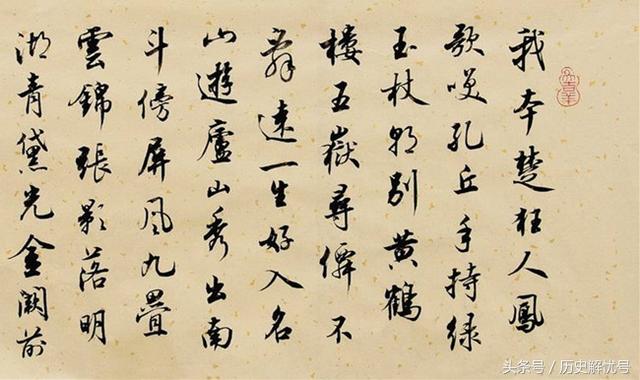 我本楚狂人鳳
歌咲孔丘手持緑
玉杖朝别黄鶴
樓五嶽尋僊不
辭遠一生好入名
山遊廬山秀出南
斗傍屏風九疊
雲錦張影落明
湖青黛光金闕前
头条号 / 历史解忧号